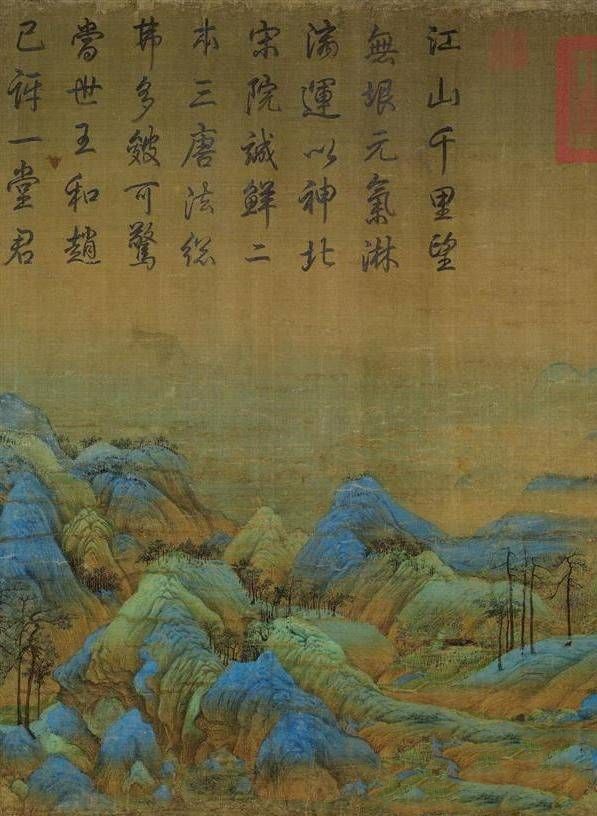 江山千里望
無垠元氣淋
漓運以神北
宋院誠鮮二
本三唐法總
多皴可驚
當世王和趙
已訝一堂君